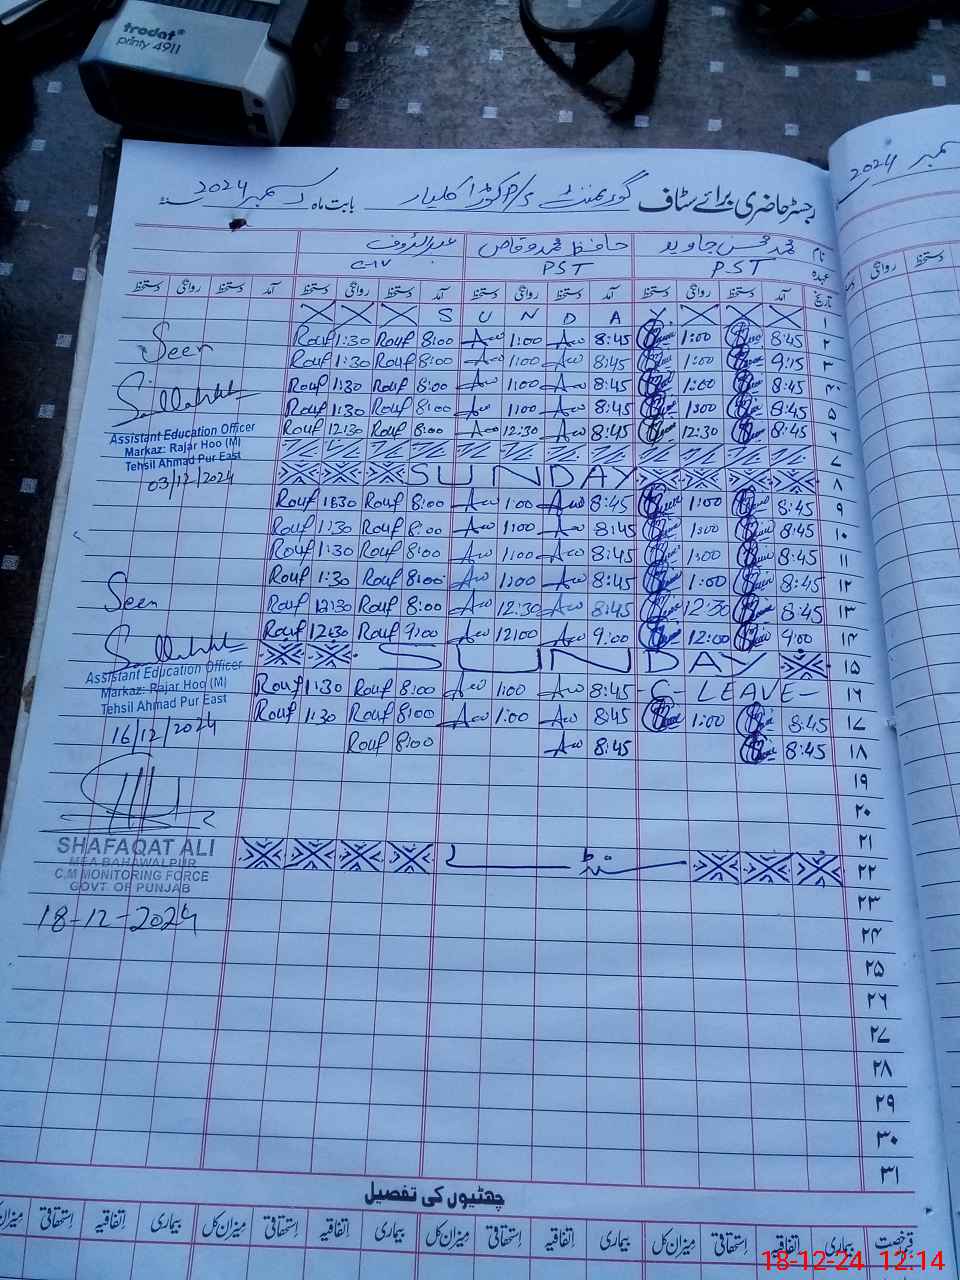 trodat
printy 4911
رجسٹر حاضری برائے سٹاف گورنمنٹ P/S بابت ماہ دسمبر 2024
دسمبر 2024
نام محمد محسن جاوید حافظ محمد وقاص عبدالرؤف
عہدہ PST PST C-IV
تاریخ آمد دستخط روانگی دستخط آمد دستخط روانگی دستخط آمد دستخط روانگی دستخط آمد دستخط روانگی دستخط
۱ S U N D A Y
۲ 8:45 1:00 8:45 1:00 8:00 Rouf 1:30 Rouf
۳ 9:15 1:00 8:45 1:00 8:00 Rouf 1:30 Rouf
۴ 8:45 1:00 8:45 1:00 8:00 Rouf 1:30 Rouf
۵ 8:45 1:00 8:45 1:00 8:00 Rouf 1:30 Rouf
۶ 8:45 12:30 8:45 12:30 8:00 Rouf 12:30 Rouf
۷
۸ SUNDAY
۹ 8:45 1:00 8:45 1:00 8:00 Rouf 1:30 Rouf
۱۰ 8:45 1:00 8:45 1:00 8:00 Rouf 1:30 Rouf
۱۱ 8:45 1:00 8:45 1:00 8:00 Rouf 1:30 Rouf
۱۲ 8:45 1:00 8:45 1:00 8:00 Rouf 1:30 Rouf
۱۳ 8:45 12:30 8:45 12:30 8:00 Rouf 12:30 Rouf
۱۴ 9:00 12:00 9:00 12:00 9:00 Rouf 12:30 Rouf
۱۵ SUNDAY
۱۶ -C- LEAVE- 8:45 1:00 8:00 Rouf 1:30 Rouf
۱۷ 8:45 1:00 8:45 1:00 8:00 Rouf 1:30 Rouf
۱۸ 8:45 8:45 8:00 Rouf
۱۹
۲۰
۲۱
۲۲ سنڈے
۲۳
۲۴
۲۵
۲۶
۲۷
۲۸
۲۹
۳۰
۳۱
Seen
Assistant Education Officer
Markaz: Rajar Hoo (M)
Tehsil Ahmad Pur East
03/12/2024
Seen
Assistant Education Officer
Markaz: Rajar Hoo (M)
Tehsil Ahmad Pur East
16/12/2024
SHAFAQAT ALI
MEA BAHAWALPUR
C.M MONITORING FORCE
GOVT. OF PUNJAB
18-12-2024
چھٹیوں کی تفصیل
قسم رخصت بیماری اتفاقیہ استحقاقی میزان کل بیماری اتفاقیہ استحقاقی میزان کل بیماری اتفاقیہ استحقاقی میزان کل بیماری اتفاقیہ استحقاقی میزان
18-12-24 12:14